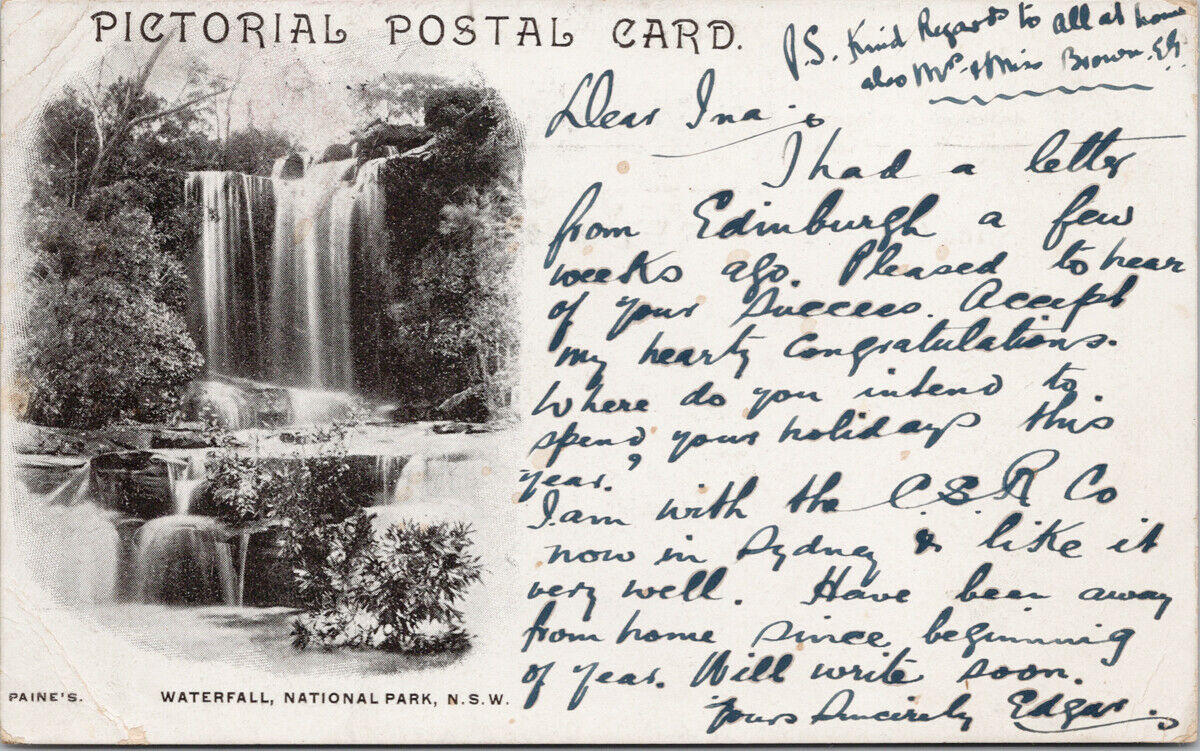 PICTORIAL POSTAL CARD.
P.S. Kind Regards to all at home
also Mrs & Miss Brown. EG.
Dear Ina.
I had a letter
from Edinburgh a few
weeks ago. Pleased to hear
of your success. Accept
my hearty congratulations.
Where do you intend to
spend your holidays this
year?
I am with the C.S.R Co
now in Sydney & like it
very well. Have been away
from home since beginning
of year. Will write soon.
Yours Sincerely Edgar.
PAINE'S. WATERFALL, NATIONAL PARK, N.S.W.